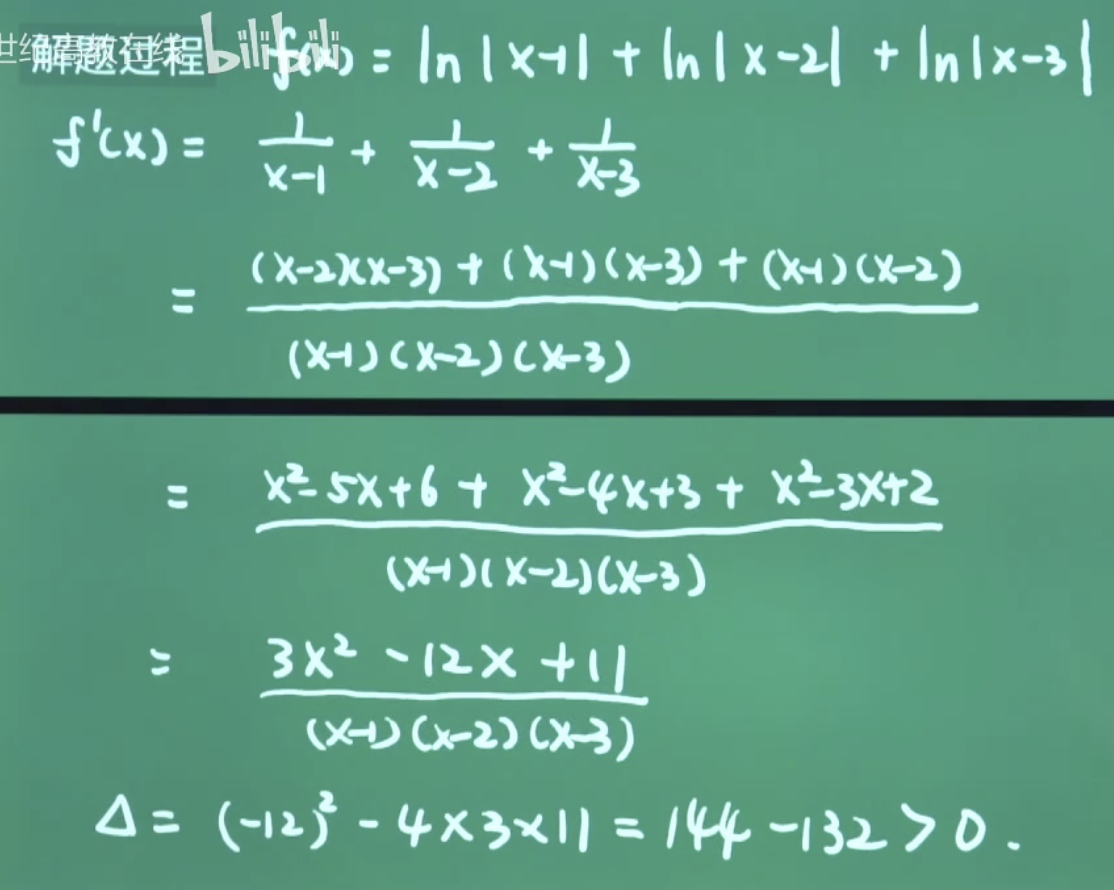 世纪高教在线 bilibili
解题过程 f(x) = ln|x-1| + ln|x-2| + ln|x-3|
f'(x) = 1/(x-1) + 1/(x-2) + 1/(x-3)
= ((x-2)(x-3) + (x-1)(x-3) + (x-1)(x-2)) / ((x-1)(x-2)(x-3))
= (x²-5x+6 + x²-4x+3 + x²-3x+2) / ((x-1)(x-2)(x-3))
= (3x² -12x +11) / ((x-1)(x-2)(x-3))
Δ = (-12)² - 4×3×11 = 144 -132 > 0.